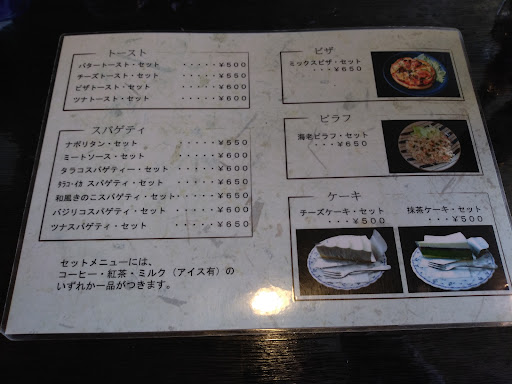 トースト
バタートースト・セット ・・・・・￥500
チーズトースト・セット ・・・・・￥550
ピザトースト・セット ・・・・・￥600
ツナトースト・セット ・・・・・￥600
スパゲティ
ナポリタン・セット ・・・・・￥550
ミートソース・セット ・・・・・￥600
タラコスパゲティー・セット ・・・・￥650
タラコ・イカ スパゲティ・セット ・・・・￥650
和風きのこスパゲティ・セット ・・・・￥650
バジリコスパゲティ・セット ・・・・￥600
ツナスパゲティ・セット ・・・・・￥650
セットメニューには、
コーヒー・紅茶・ミルク（アイス有）の
いずれか一品がつきます。
ピザ
ミックスピザ・セット
・・・￥650
ピラフ
海老ピラフ・セット
・・・￥650
ケーキ
チーズケーキ・セット
・・・￥500
抹茶ケーキ・セット
・・・￥500